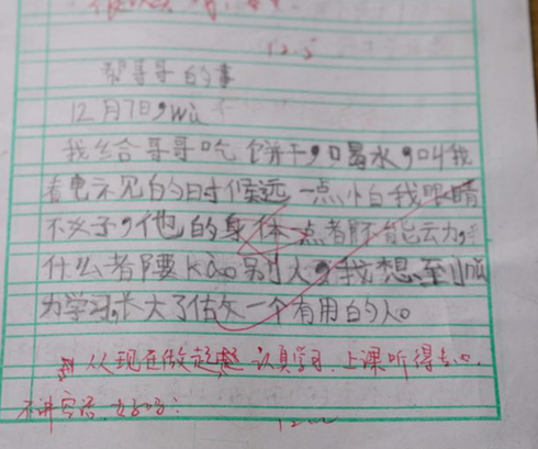 12.5
帮哥哥的事
12月7日,wù
我给哥哥吃饼干,口喝水,叫我
看电示见的时候远一点怕我眼睛
不好,他的身体一点都不能云力,
什么都要kào别人,我想到
为学习,长大了估文一个有用的人。
从现在做起 认真学习,上课听得专心,
不讲空话,